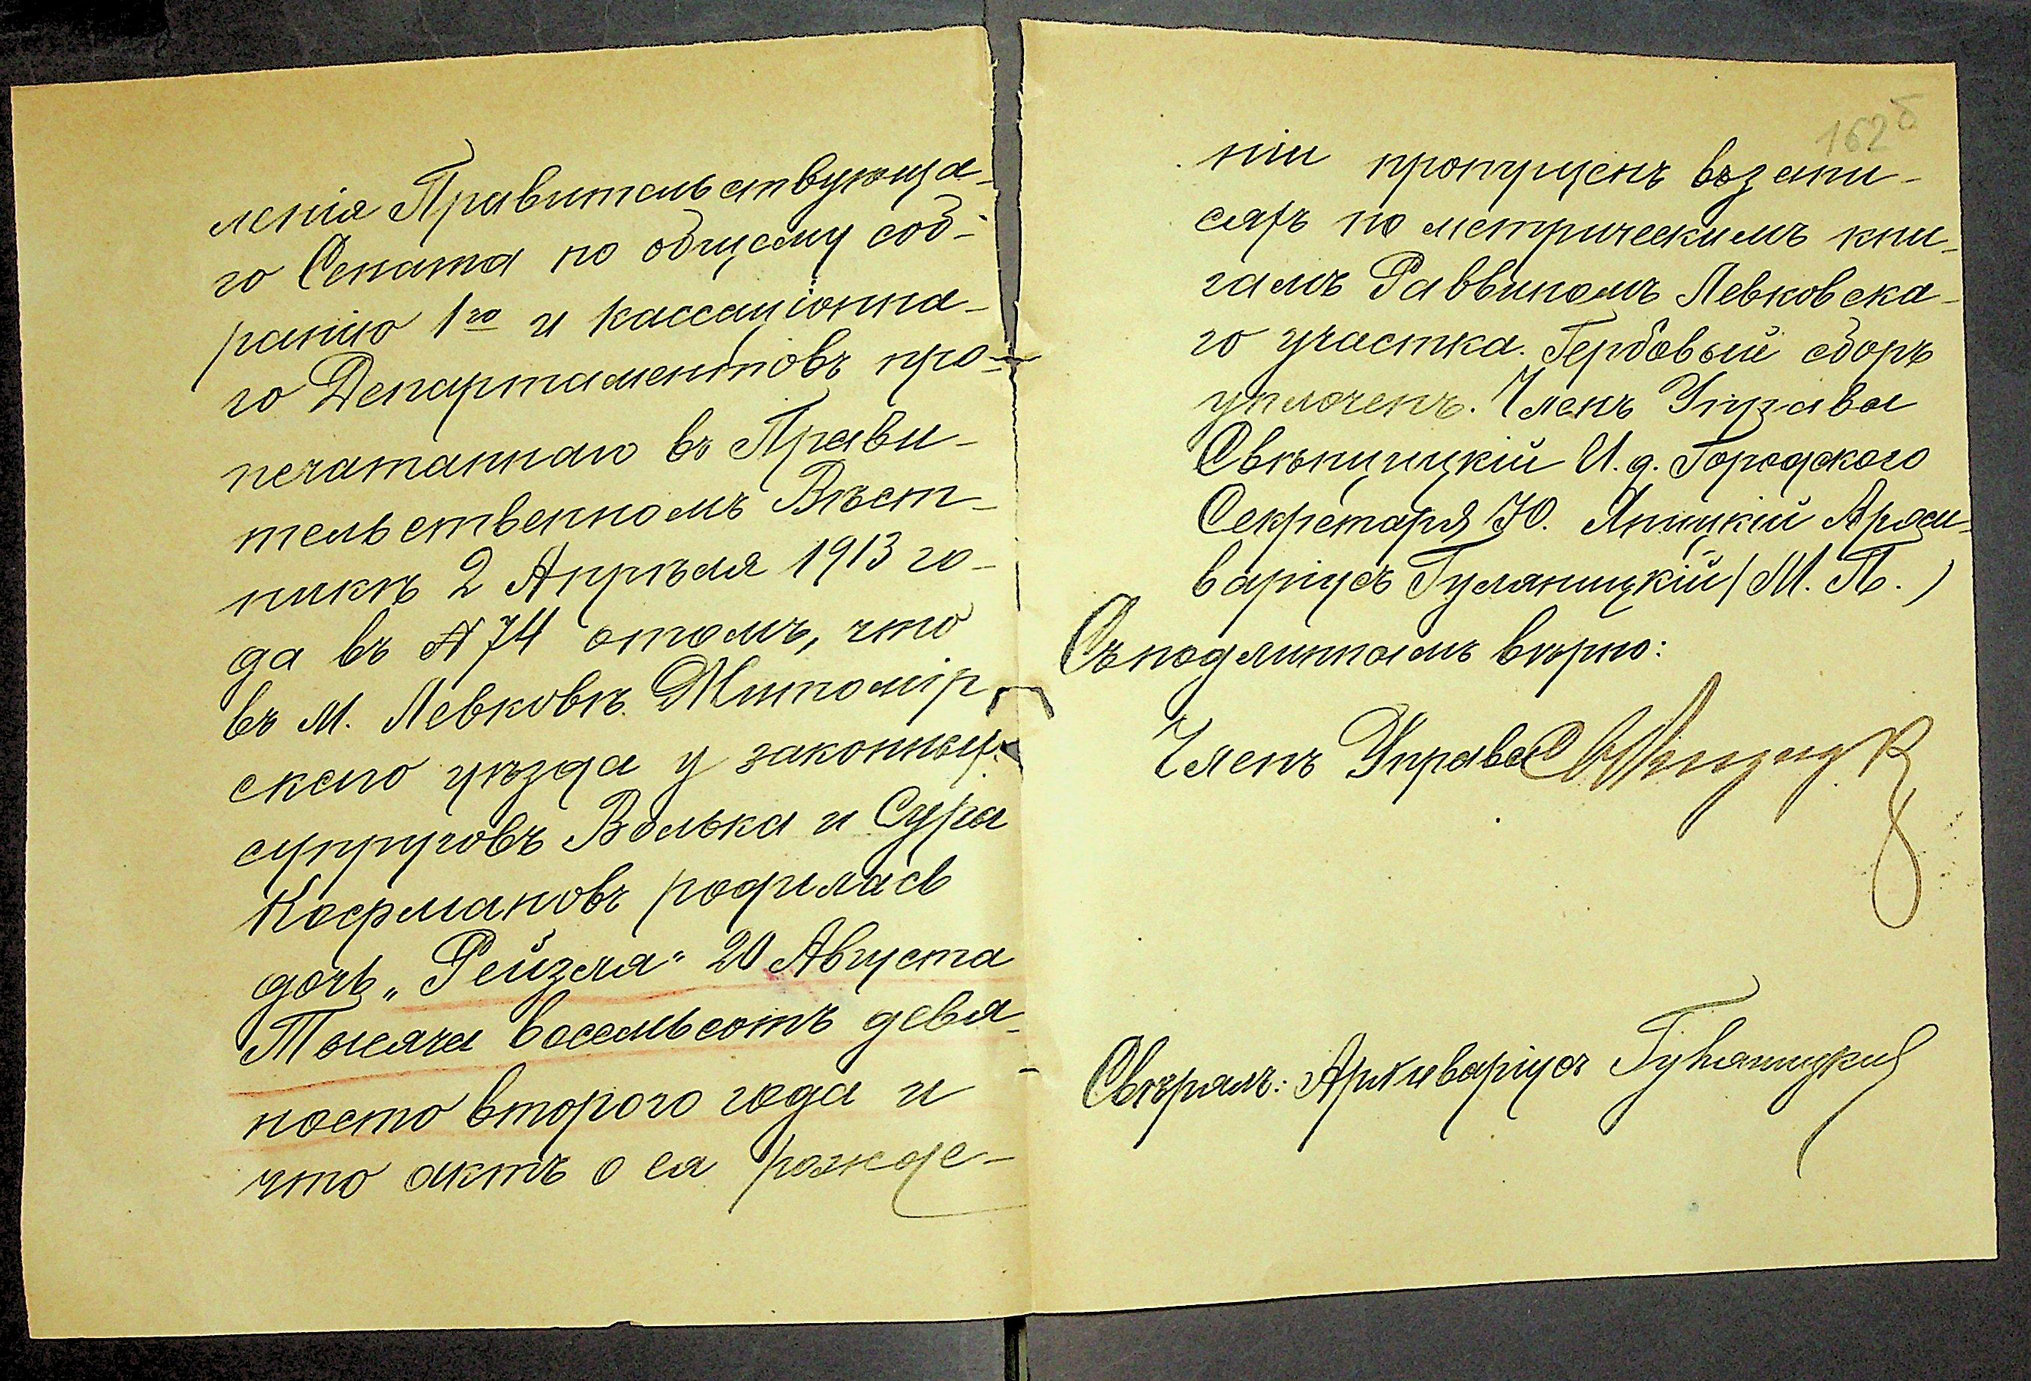 ленія Правительствующа-
го Сената по общему соб-
ранію 1го и кассаціонна-
го Департаментовъ про-
печатаннаго въ Прави-
тельственномъ Вѣст-
никѣ 2 Апрѣля 1913 го-
да въ № 74 отомъ, что
въ М. Левковѣ Житомір
скаго уѣзда у законныхъ
супруговъ Волька и Суры
Кофмановъ родилась
дочь „Рейзля" 20 Августа
Тысяча восемьсотъ девя-
носто второго года и
что актъ о ея рожде-
162 б
ніи пропущенъ въ запи-
сяхъ по метрическимъ кни-
гамъ Раввиномъ Левковска-
го участка. Гербовый сборъ
уплоченъ. Членъ Управы
И. д. Городского
Секретаря Ю. Яницкій Архи-
варіусъ Гуляницкій (М. П.)
Съ подлиннымъ вѣрно:
Членъ Управы
Свѣрялъ: Архиваріусъ Гуляницкій